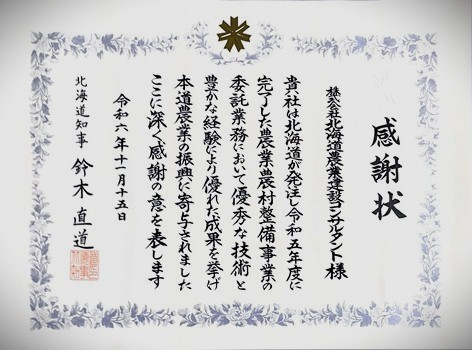 感謝状
株式会社北海道農業建設コンサルタント様
貴社は北海道が発注し令和五年度に
完了した農業農村整備事業の
委託業務において優秀な技術と
豊かな経験により優れた成果を挙げ
本道農業の振興に寄与されました
ここに深く感謝の意を表します
令和六年十一月十五日
北海道知事 鈴木直道